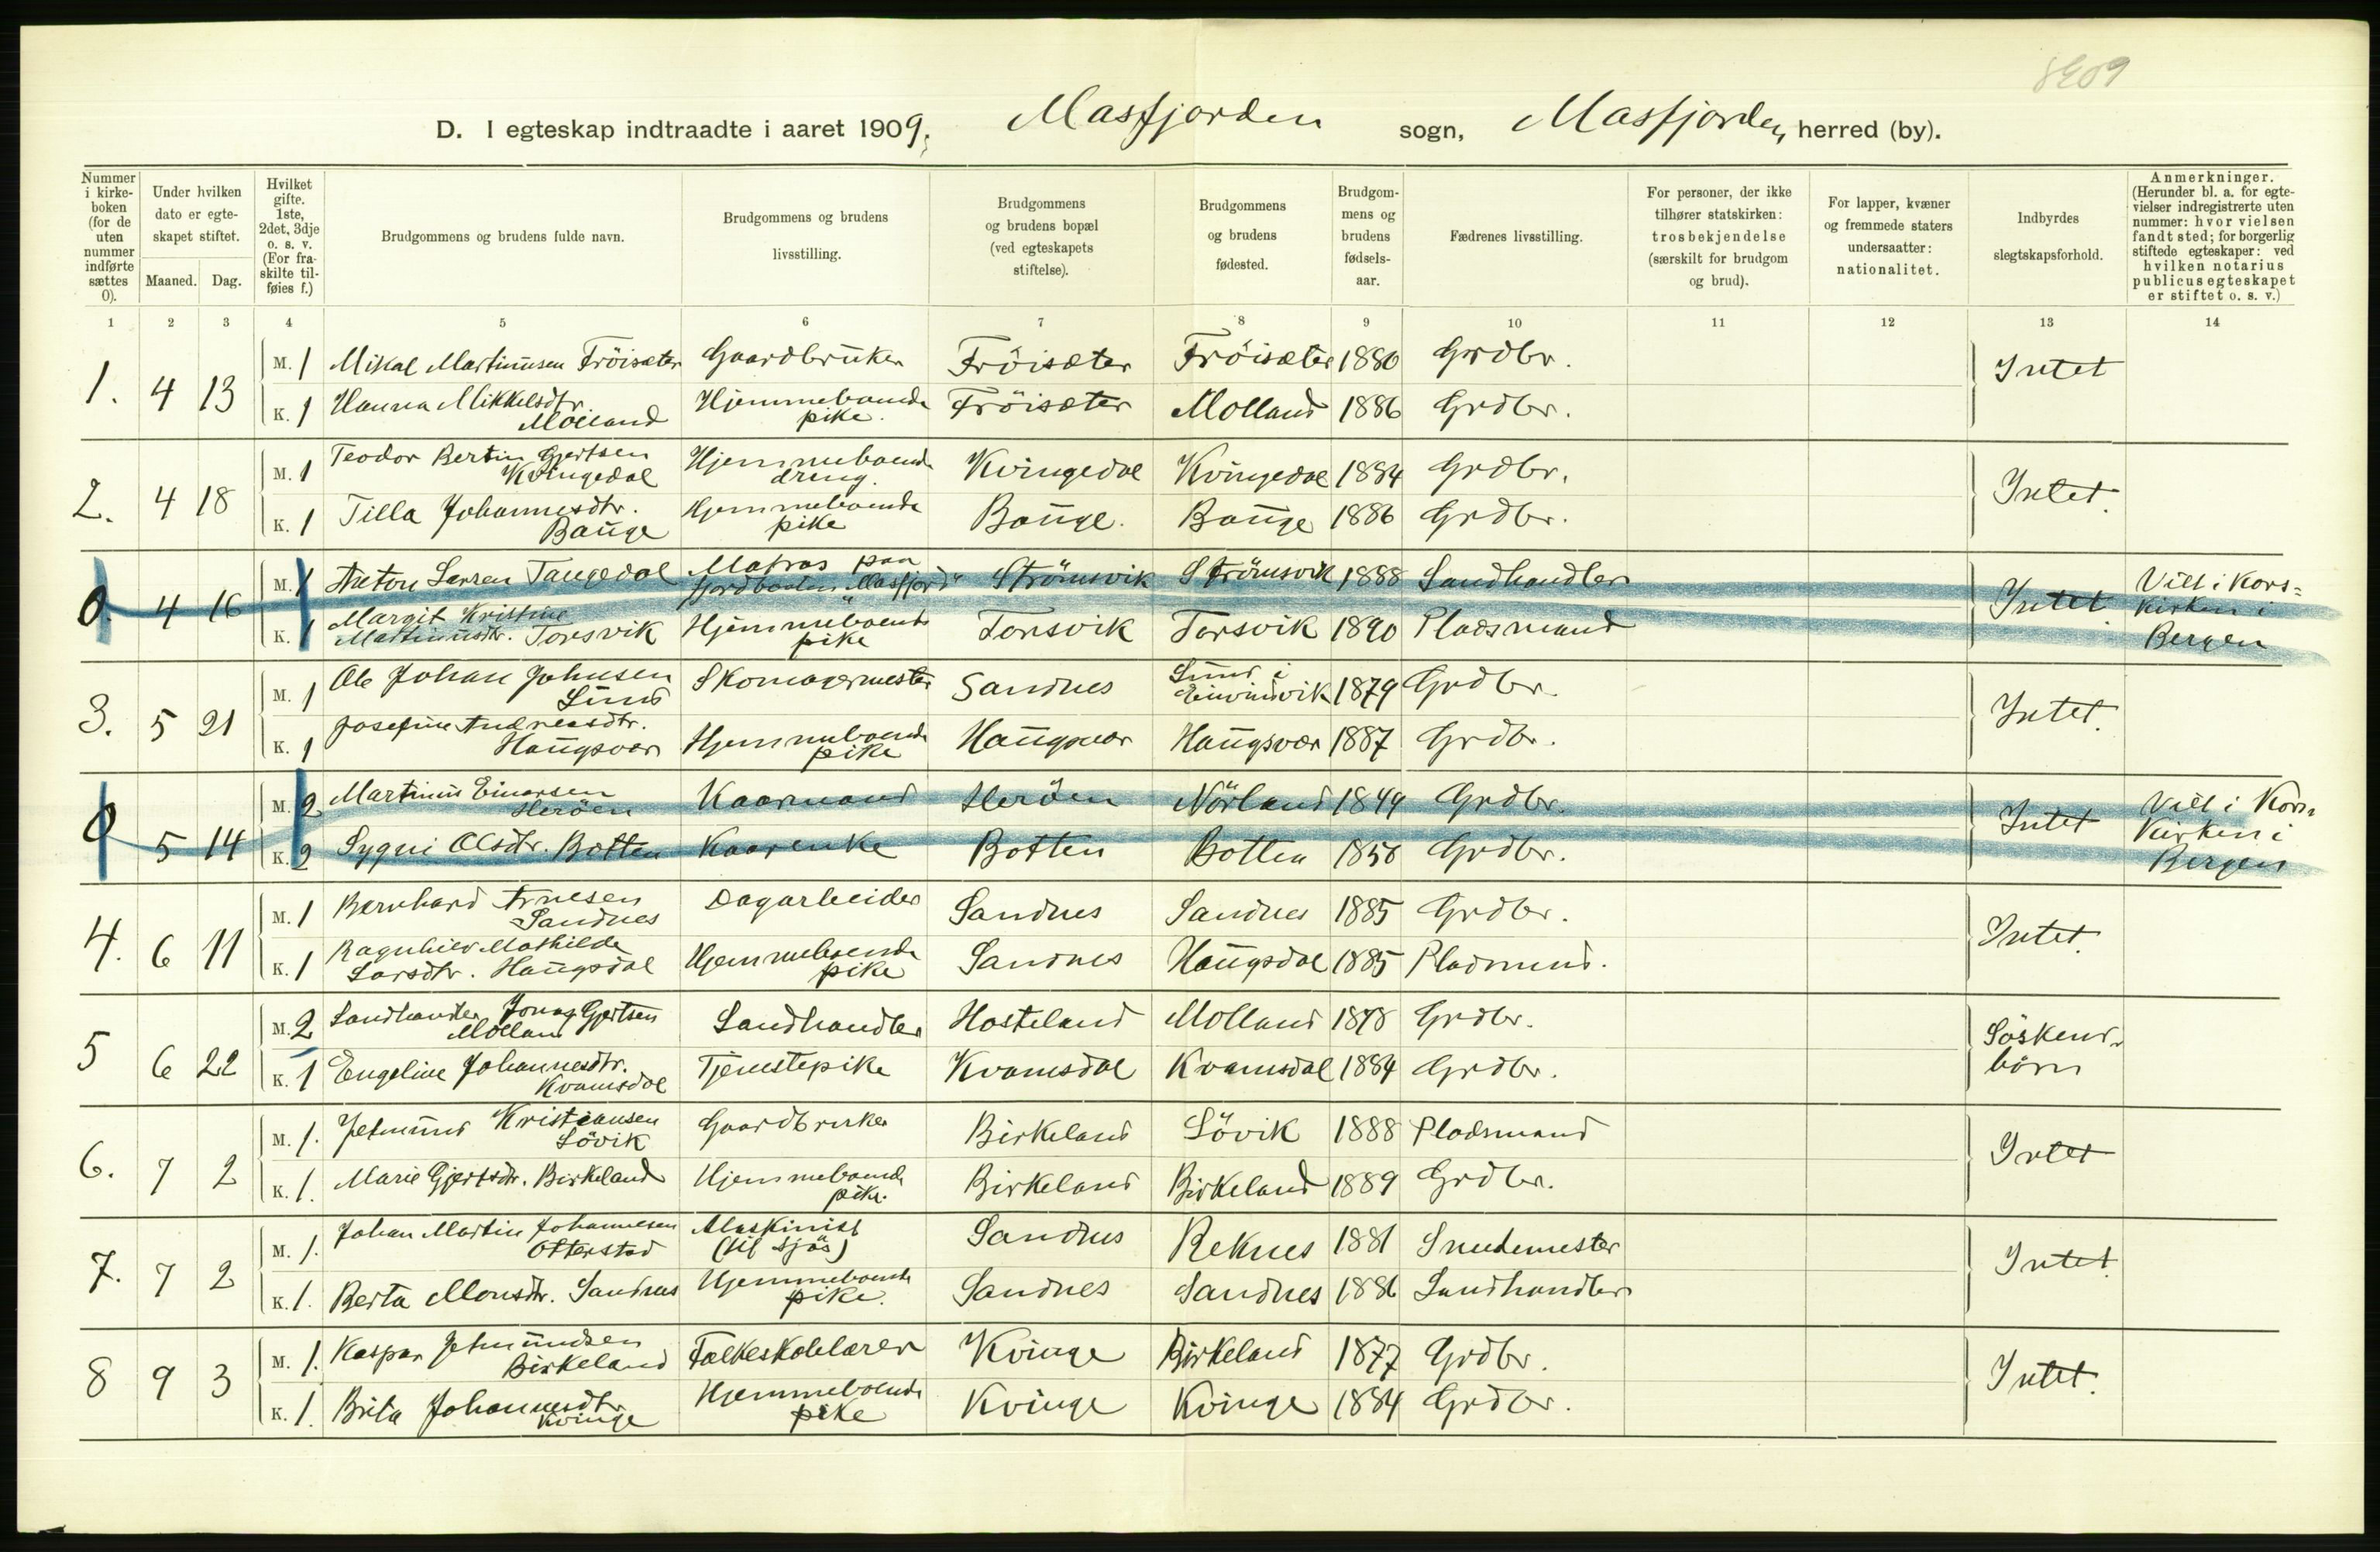 8209
D. I egteskap indtraadte i aaret 1909. Masfjorden sogn, Masfjorden herred (by).
Nummer i kirke-boken (for de uten nummer indførte sættes 0).
Under hvilken dato er egte-skapet stiftet.
Maaned. Dag.
Hvilket gifte. 1ste, 2det, 3dje o. s. v. (For fra-skilte til-føies f.)
Brudgommens og brudens fulde navn.
Brudgommens og brudens livsstilling.
Brudgommens og brudens bopæl (ved egteskapets stiftelse).
Brudgommens og brudens fødested.
Brudgom-mens og brudens fødsels-aar.
Fædrenes livsstilling.
For personer, der ikke tilhører statskirken: trosbekjendelse (særskilt for brudgom og brud).
For lapper, kvæner og fremmede staters undersaatter: nationalitet.
Indbyrdes slegtskapsforhold.
Anmerkninger. (Herunder bl. a. for egte-vielser indregistrerte uten nummer: hvor vielsen fandt sted; for borgerlig stiftede egteskaper: ved hvilken notarius publicus egteskapet er stiftet o. s. v.)
1 2 3 4 5 6 7 8 9 10 11 12 13 14
1. 4 13 M. 1 Mikal Martinusen Fröisæter Gaardbruker Fröisæter Fröisæter 1880 Grdbr. Intet
K. 1 Hanna Mikkelsdtr. Molland Hjemmeboende pike. Fröisæter Molland 1886 Grdbr.
2. 4 18 M. 1 Teodor Bertin Gjertsen Kvingedal Hjemmeboende dreng. Kvingedal Kvingedal 1884 Grdbr. Intet.
K. 1 Tilla Johannesdtr. Bauge Hjemmeboende pike Bauge. Bauge 1886 Grdbr.
0. 4 16 M. 1 Anton Larsen Tangedal Matros paa fjordbaaten "Masfjord" Strömsvik Strömsvik 1888 Landhandler Intet. Viet i Kors=kirken i Bergen
K. 1 Margit Kristine Martinusdtr. Torsvik Hjemmeboende pike Torsvik Torsvik 1890 Pladsmand
3. 5 21 M. 1 Ole Johan Johnsen Lund Skomagermester Sandnes Lund i Eivindvik 1879 Grdbr. Intet.
K. 1 Josefine Andreasdtr. Haugsvær Hjemmeboende pike Haugsvær Haugsvær 1887 Grdbr.
0 5 14 M. 2 Martinus Einarsen Heröen Kaarmand Heröen Nörland 1849 Grdbr. Intet Viet i Kors kirken i Bergen
K. 2 Sygni Olsdtr. Botten Kaarenke Botten Botten 1858 Grdbr.
4. 6 11 M. 1 Bernhard Arnesen Sandnes Dagarbeider Sandnes Sandnes 1885 Grdbr. Intet.
K. 1 Ragnhild Mathilde Larsdtr. Haugsdal Hjemmeboende pike Sandnes Haugsdal 1885 Pladsmand.
5 6 22 M. 2 Landhandler Jonas Gjertsen Molland Landhandler Hosteland Molland 1878 Grdbr. Söskend-börn
K. 1 Engeline Johannesdtr. Kvamsdal Tjenestepike Kvamsdal Kvamsdal 1884 Grdbr.
6. 7 2 M. 1. Jetmund Kristiansen Lövik Gaardbruker Birkeland Lövik 1888 Pladsmand Intet
K. 1. Marie Gjertsdtr. Birkeland Hjemmeboende pike. Birkeland Birkeland 1889 Grdbr.
7. 7 2 M. 1. Johan Martin Johannesen Otterstad Maskinist (til sjös) Sandnes Reknes 1881 Smedemester Intet.
K. 1. Berta Monsdtr. Sandnes Hjemmeboende pike. Sandnes Sandnes 1886 Landhandler
8 9 3 M. 1. Kaspar Jetmundsen Birkeland Folkeskolelærer Kvinge Birkeland 1877 Grdbr. Intet.
K. 1. Brita Johannesdtr. Kvinge Hjemmeboende pike Kvinge Kvinge 1884 Grdbr.